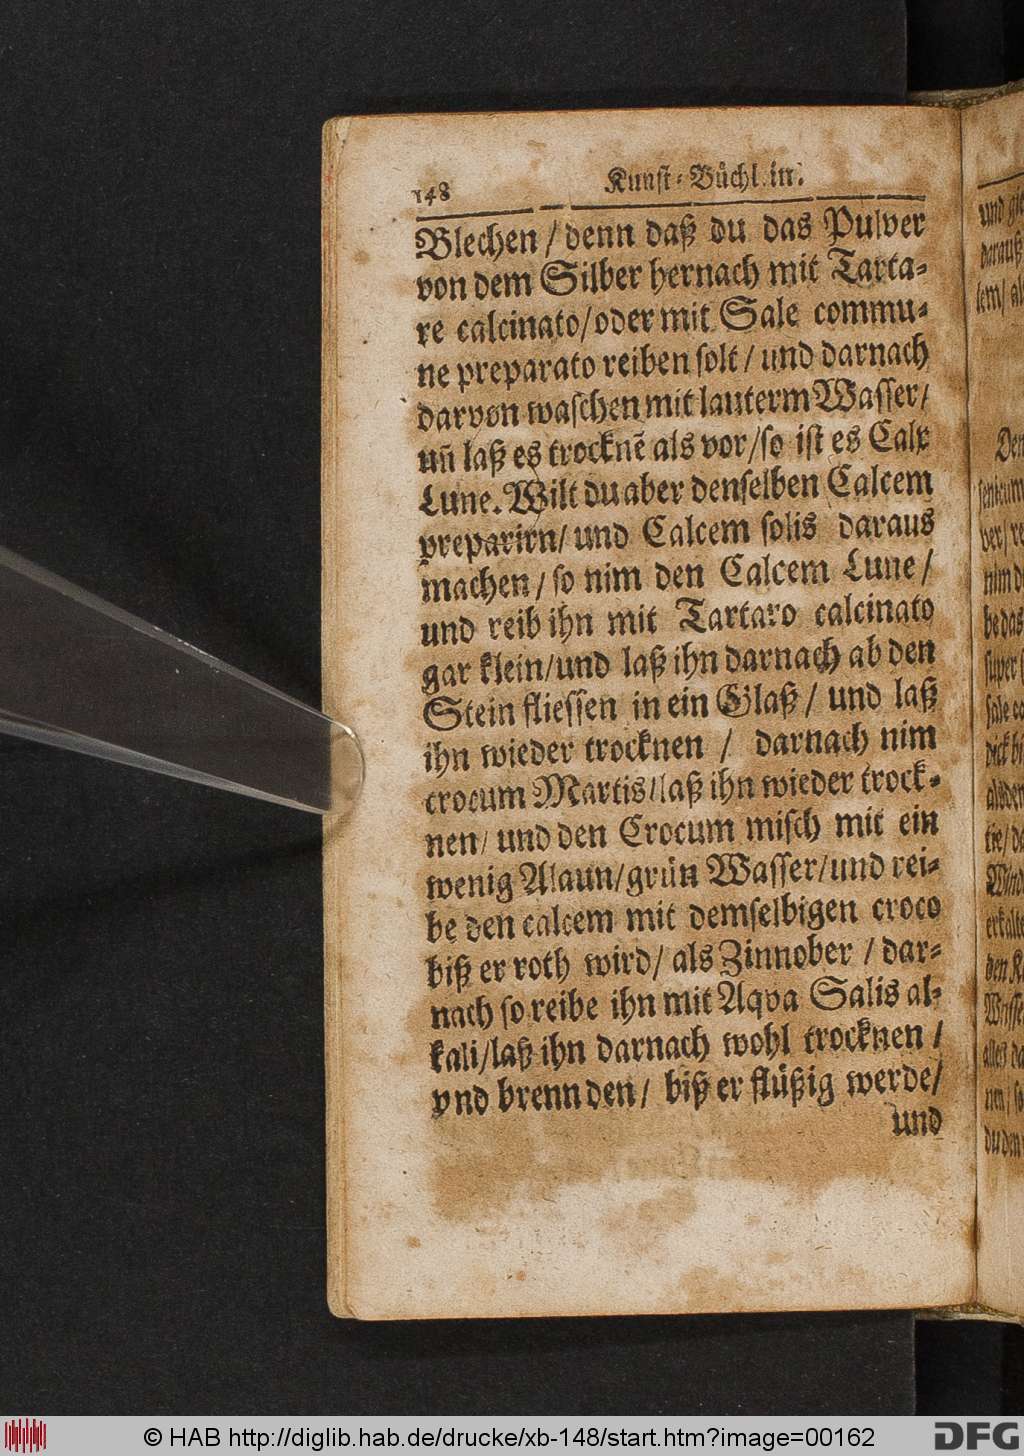 148 Kunst-Büchl.in.
Blechen / denn daß du das Pulver
von dem Silber hernach mit Tarta-
re calcinato/oder mit Sale commu-
ne preparato reiben solt / und darnach
darvon waschen mit lauterm Wasser/
uñ laß es trocknẽ als vor/so ist es Calx
Lune. Wilt du aber denselben Calcem
preparirn/ und Calcem solis daraus
machen / so nim den Calcem Lune /
und reib ihn mit Tartaro calcinato
gar klein/und laß ihn darnach ab den
Stein fliessen in ein Glaß / und laß
ihn wieder trocknen / darnach nim
crocum Martis/laß ihn wieder trock-
nen/ und den Crocum misch mit ein
wenig Alaun/grün Wasser/und rei-
be den calcem mit demselbigen croco
biß er roth wird/ als Zinnober / dar-
nach so reibe ihn mit Aqva Salis al-
kali/laß ihn darnach wohl trocknen /
vnd brenn den / biß er flüßig werde/
und
und
daraus
sem/ al
Den
ver/ re
nim d
be das
super s
sale co
dick bi
tie/ da
Wind
erkalte
den K
Wasse
alles da
nen/ so
du den
© HAB http://diglib.hab.de/drucke/xb-148/start.htm?image=00162
DFG